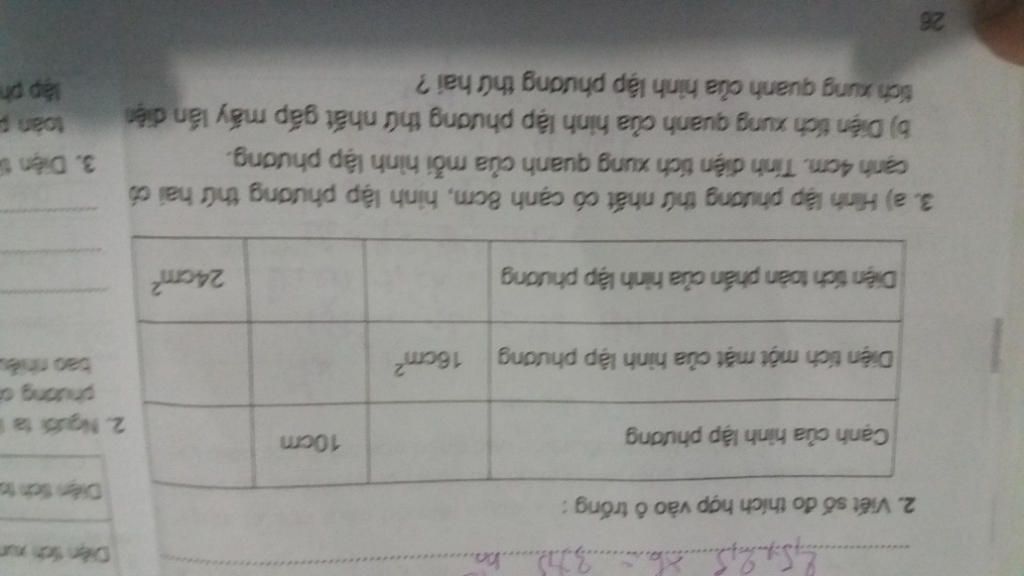 2. Viết số đo thích hợp vào ô trống :
Cạnh của hình lập phương 10cm
Diện tích một mặt của hình lập phương 16cm²
Diện tích toàn phần của hình lập phương 24cm²
3. a) Hình lập phương thứ nhất có cạnh 8cm, hình lập phương thứ hai có
cạnh 4cm. Tính diện tích xung quanh của mỗi hình lập phương.
b) Diện tích xung quanh của hình lập phương thứ nhất gấp mấy lần diện
tích xung quanh của hình lập phương thứ hai ?
26
Diện tích
Diện tích
2. Người ta
phương
bao nhiêu
3. Diện
toàn
lập